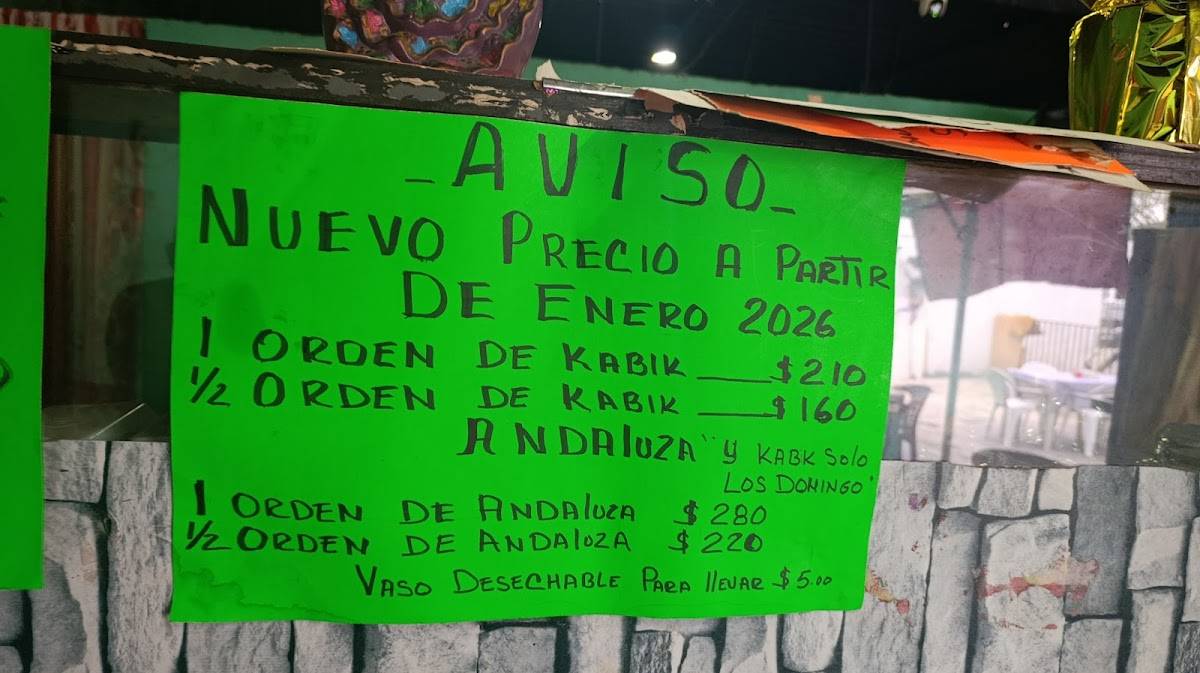 _AVISO_
NUEVO PRECIO A PARTIR
DE ENERO 2026
1 ORDEN DE KABIK ____$210
1/2 ORDEN DE KABIK ____$160
ANDAlUZA" y KABK Solo
LOS DOMINGO'
1 ORDEN DE ANDAlUZA $280
1/2 ORDEN DE ANDAlOZA $220
VASO DESECHABLE PARA llEVAR $5.00